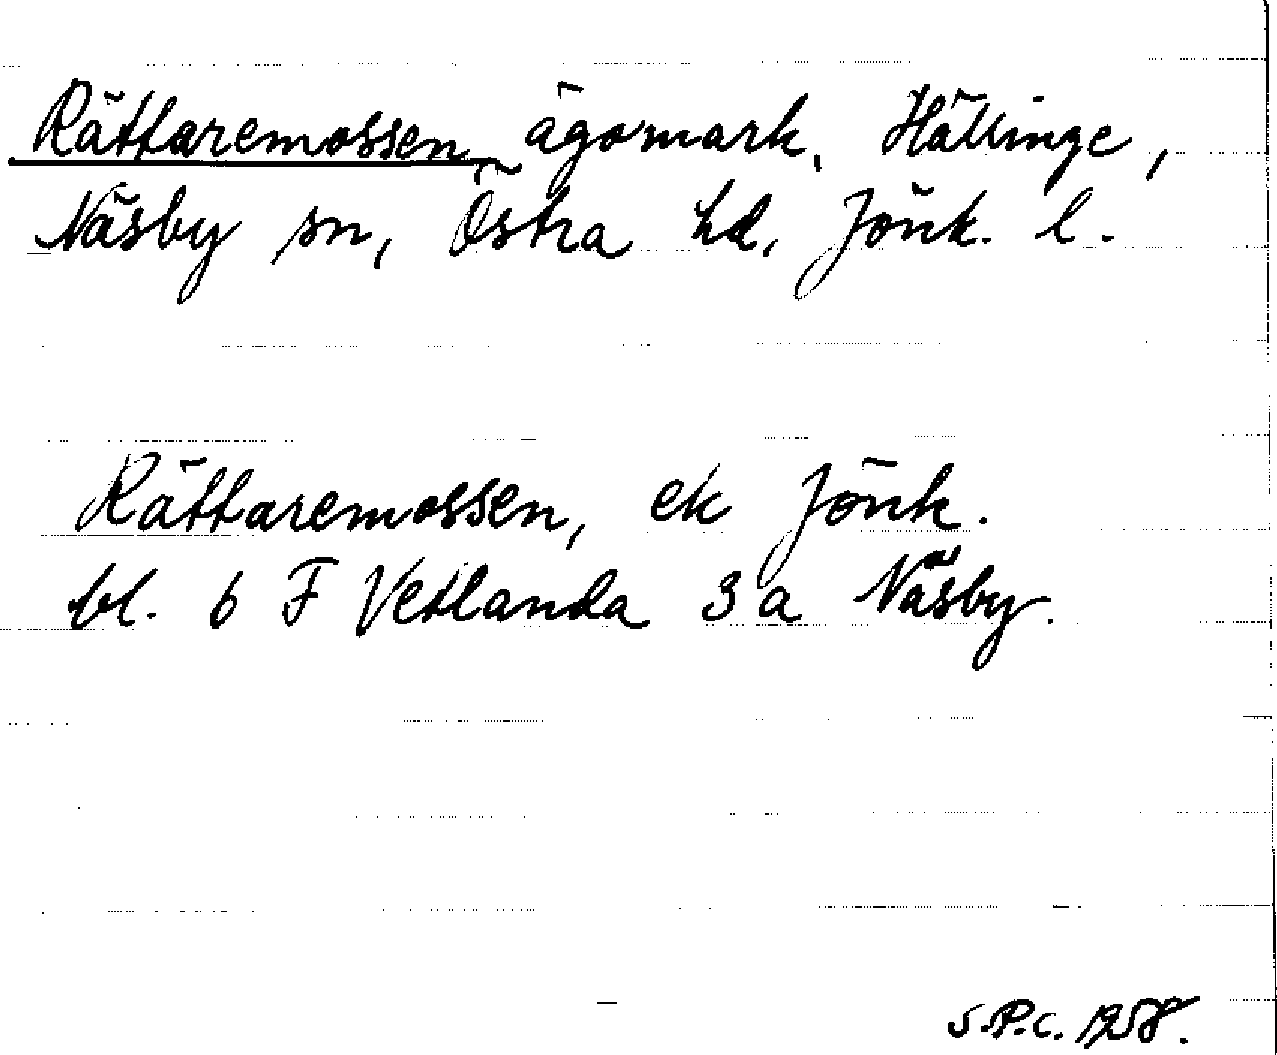 Rättaremossen, ägomark, Hällinge,
Näsby sn, Östra hd, Jönk. l.
Rättaremossen, ek Jönk.
bl. 6 F Vetlanda 3 a Näsby.
S.P.C. 1958.